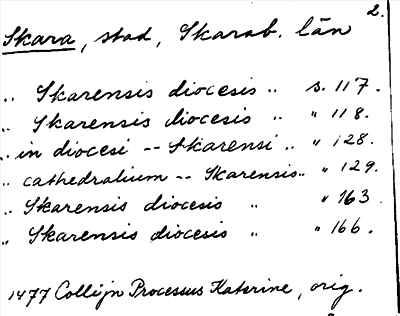 2.
Skara, stad, Skarab. län
„ Skarensis diocesis „ s. 117.
„ Skarensis diocesis „ „ 118.
„ in diocesi -- Skarensi „ „ 128.
„ cathedralium -- Skarensis „ „ 129.
„ Skarensis diocesis „ „ 163.
„ Skarensis diocesis „ „ 166.
1477 Collijn Processus Katerine, orig.